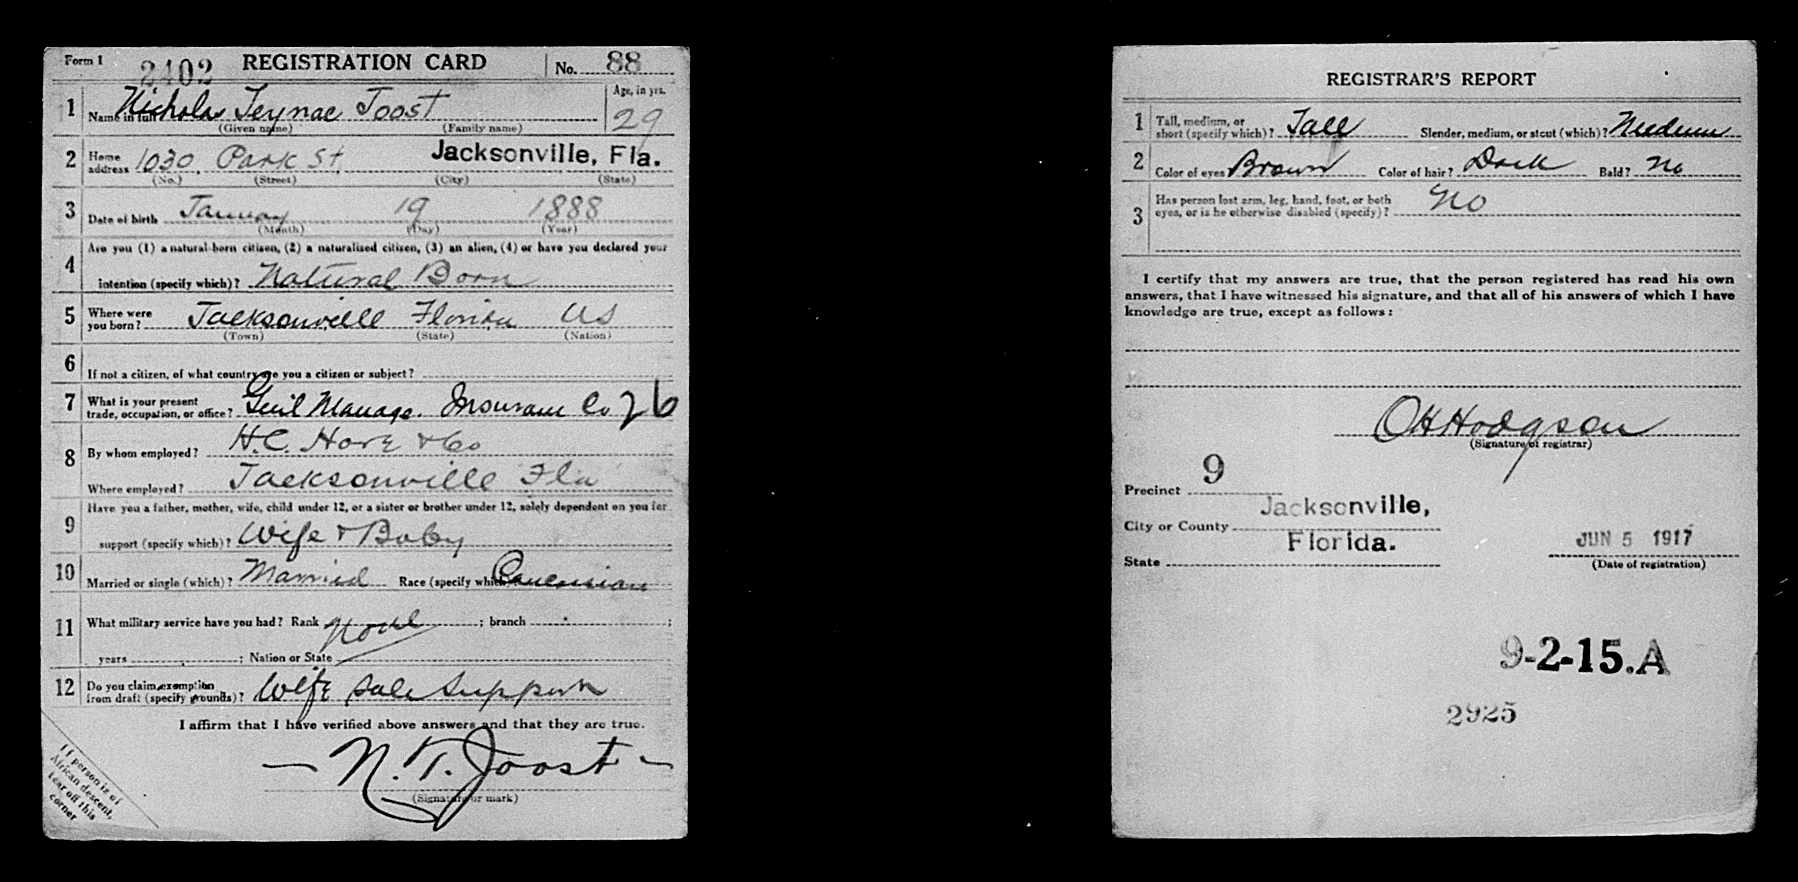 Form 1 2402 REGISTRATION CARD No. 88
1 Name in full Nicholas Teynac Joost Age, in yrs. 29
(Given name) (Family name)
2 Home address 1030 Park St. Jacksonville, Fla.
(No.) (Street) (City) (State)
3 Date of birth January 19 1888
(Month) (Day) (Year)
Are you (1) a natural-born citizen, (2) a naturalized citizen, (3) an alien, (4) or have you declared your
4 intention (specify which)? Natural Born
5 Where were you born? Jacksonville Florida US
(Town) (State) (Nation)
6 If not a citizen, of what country are you a citizen or subject?
7 What is your present trade, occupation, or office? Genl Manage. Insurance Co 26
8 By whom employed? H.C. Hare & Co
Where employed? Jacksonville Fla
Have you a father, mother, wife, child under 12, or a sister or brother under 12, solely dependent on you for
9 support (specify which)? Wife & Baby
10 Married or single (which)? Married Race (specify which)? Caucasian
11 What military service have you had? Rank None ; branch ;
years ; Nation or State
12 Do you claim exemption from draft (specify grounds)? Wife sole support
I affirm that I have verified above answers and that they are true.
N. T. Joost
(Signature or mark)
If person is of
African descent,
tear off this
corner
REGISTRAR'S REPORT
1 Tall, medium, or short (specify which)? Tall Slender, medium, or stout (which)? Medium
2 Color of eyes Brown Color of hair? Dark Bald? No
3 Has person lost arm, leg, hand, foot, or both eyes, or is he otherwise disabled (specify)? No
I certify that my answers are true, that the person registered has read his own
answers, that I have witnessed his signature, and that all of his answers of which I have
knowledge are true, except as follows:
O H Hodgson
(Signature of registrar)
Precinct 9
City or County Jacksonville,
State Florida.
JUN 5 1917
(Date of registration)
9-2-15.A
2925